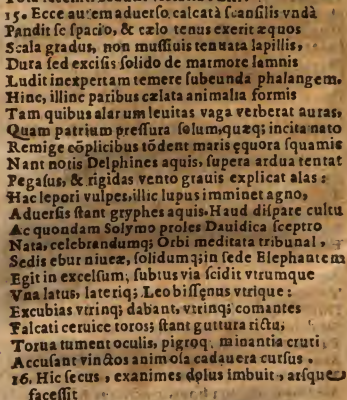 15. Ecce autem aduerso calcatà scansilis vndà
Pandit se spacio, & cælo tenus exerit æquos
Scala gradus, non mussiuis tenuata lapillis,
Dura sed excisis solido de marmore lamnis
Ludit inexpertam temere subeunda phalangem.
Hinc, illinc paribus cælata animalia formis
Tam quibus alarum leuitas vaga verberat auras,
Quam patrium pressura solum, quæq; incita nato
Remige cōplicibus tōdent maris equora squamis
Nant notis Delphines aquis, supera ardua tentat
Pegasus, & rigidas vento grauis explicat alas:
Hac lepori vulpes, illic lupus imminet agno,
Aduersis stant gryphes aquis. Haud dispare cultu
Ac quondam Solymo proles Dauidica sceptro
Nata, celebrandumq; Orbi meditata tribunal,
Sedis ebur niueæ, solidumq; in sede Elephantem
Egit in excelsum; subtus via scidit vtrumque
Vna latus, lateriq; Leo bissenus vtrique:
Excubias vtrinq; dabant, vtrinq; comantes
Falcati ceruice toros; stant guttura rictu,
Torua tument oculis, pigroq. minantia cruri
Accusant vinctos animosa cadauera cursus.
16. Hic secus, exanimes dolus imbuit, arsque
facessit